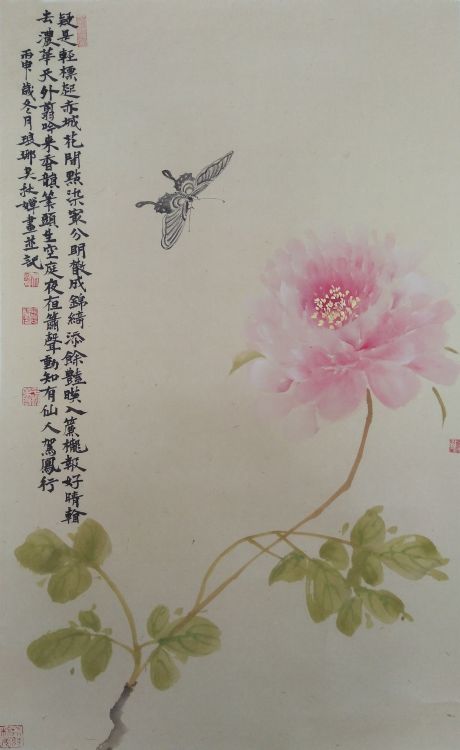 疑是輕標起赤城花間點染寔分明散成錦綺添餘豔暎入簾櫳報好晴翰
去濃華天外剪吟來香韻筆頭生空庭夜夜簫聲動知有仙人駕鳳行
丙申歲冬月琅琊吳秋嬋畫並記